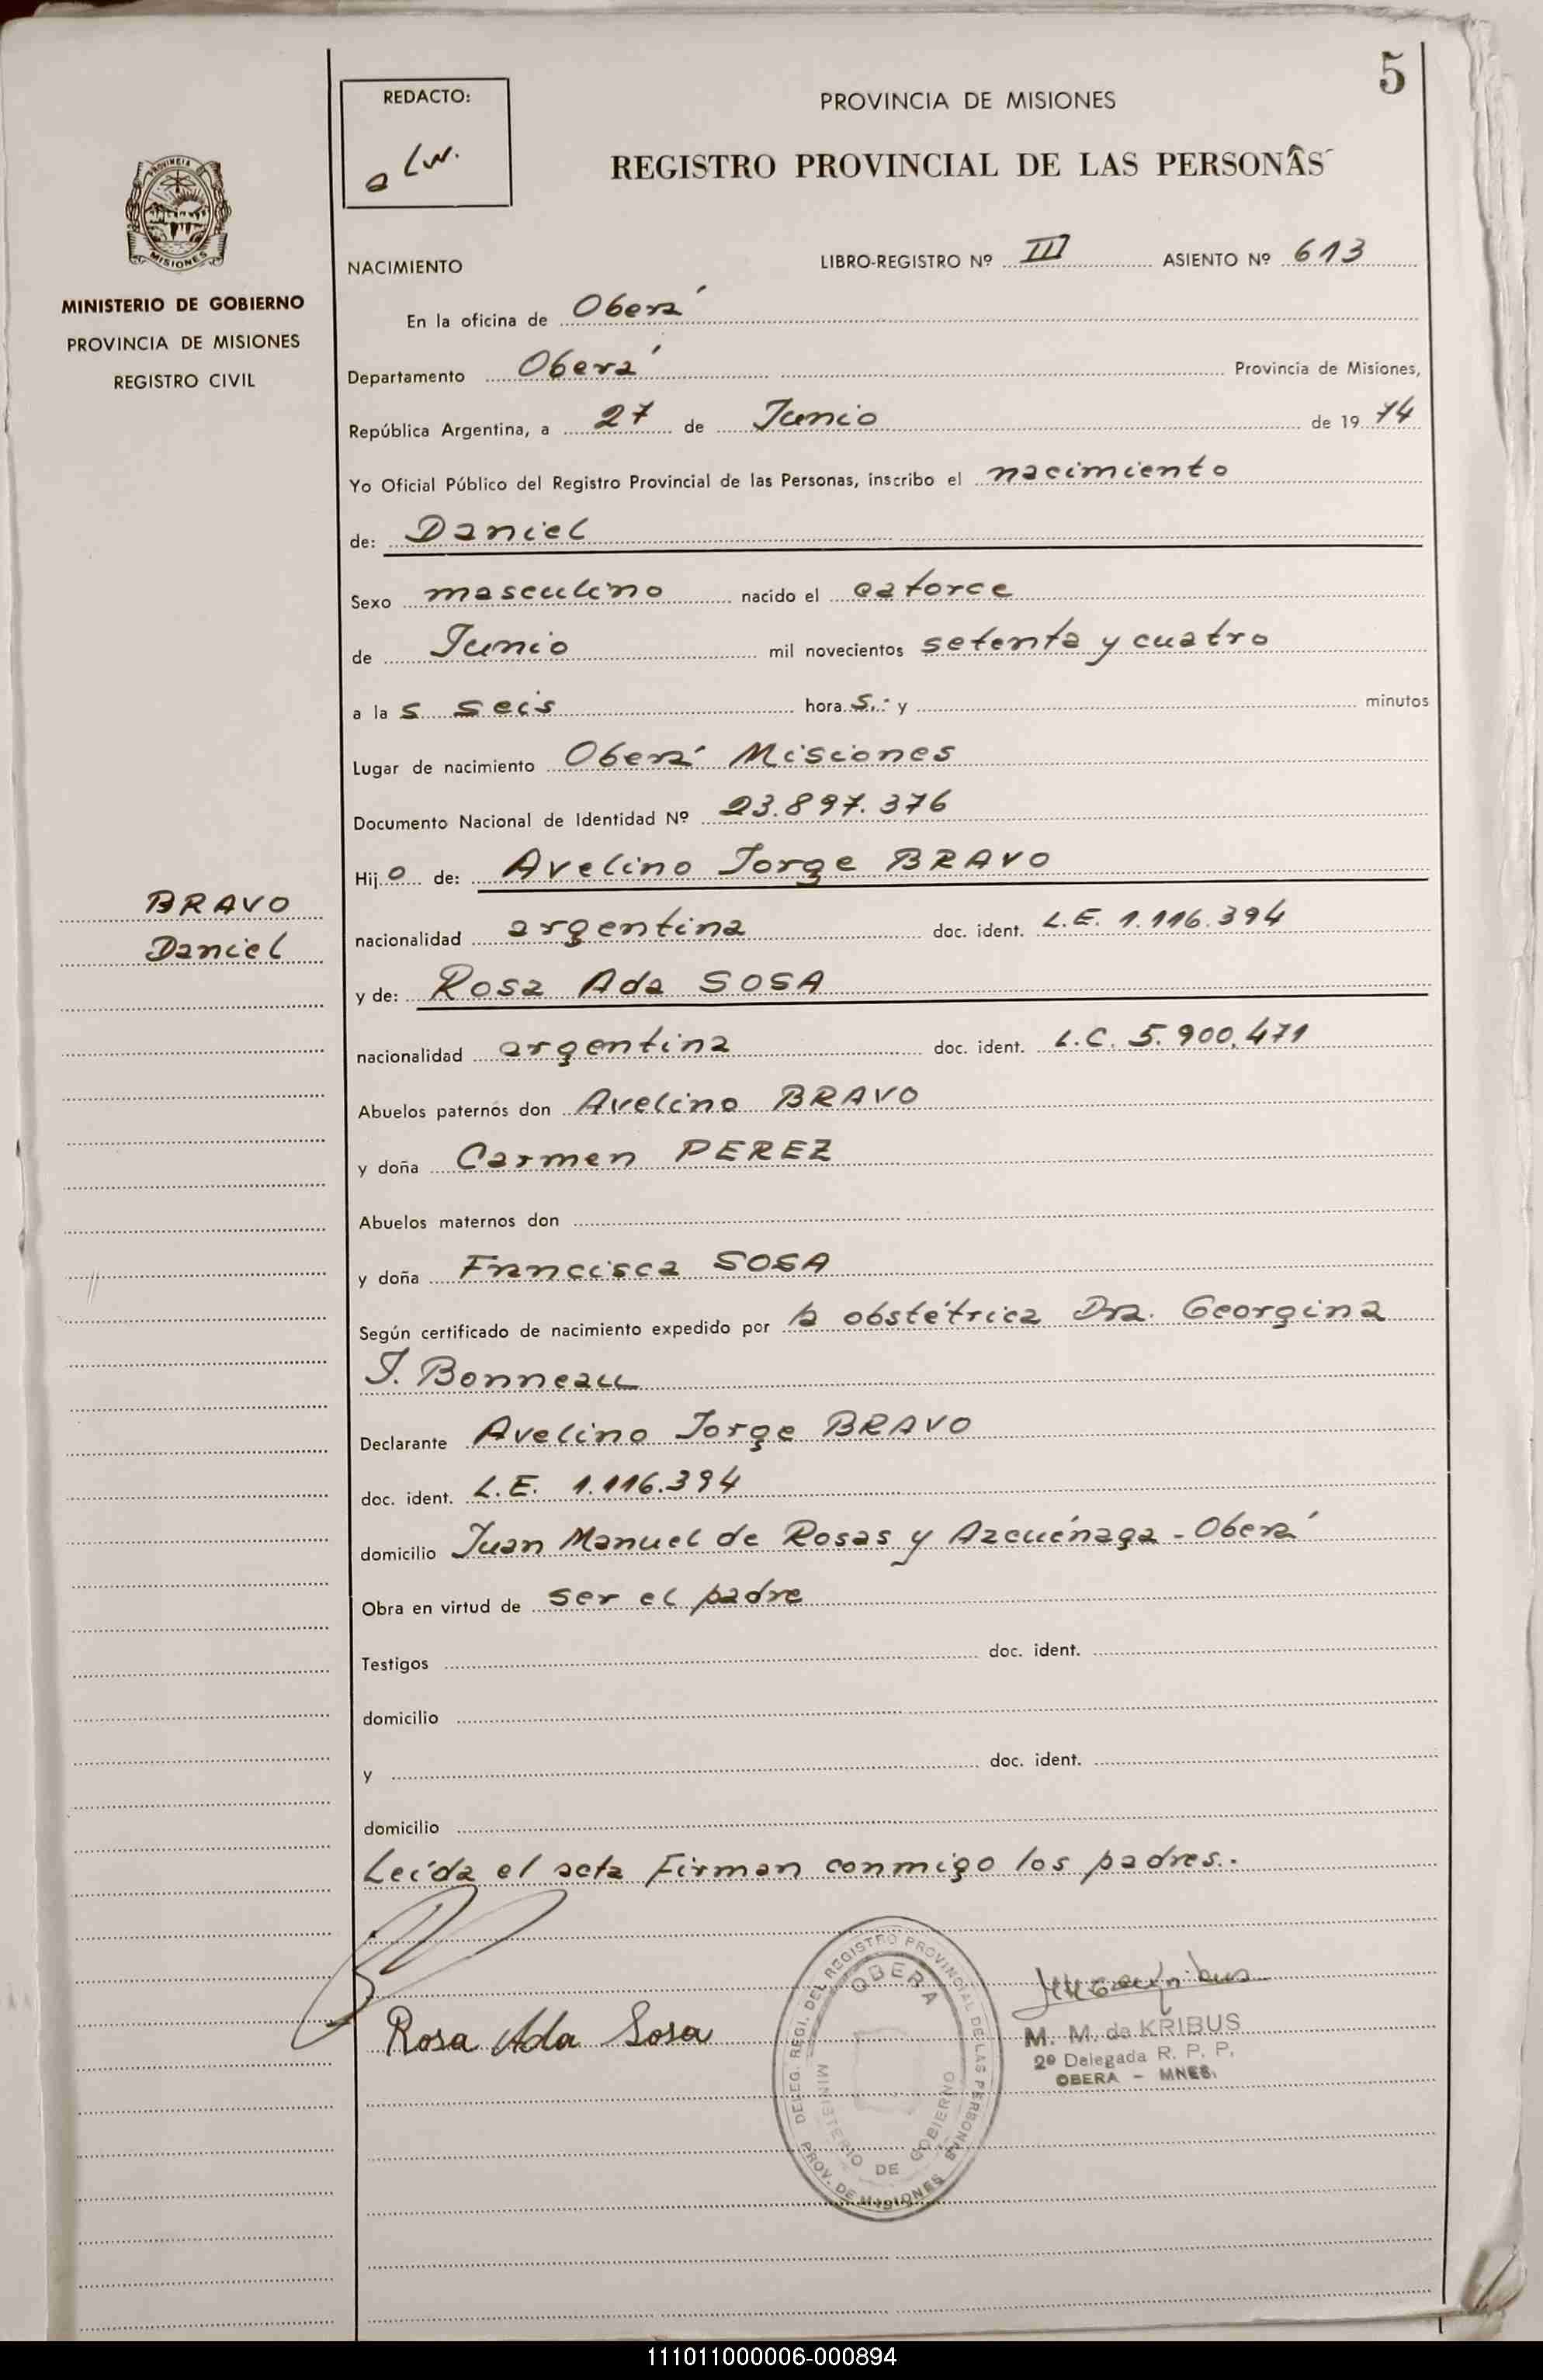 5
REDACTO:
PROVINCIA DE MISIONES
REGISTRO PROVINCIAL DE LAS PERSONAS
PROVINCIA
MISIONES
MINISTERIO DE GOBIERNO
PROVINCIA DE MISIONES
REGISTRO CIVIL
BRAVO
Daniel
NACIMIENTO LIBRO-REGISTRO Nº III ASIENTO Nº 613
En la oficina de Oberá
Departamento Oberá Provincia de Misiones,
República Argentina, a 27 de Junio de 1974
Yo Oficial Público del Registro Provincial de las Personas, inscribo el nacimiento
de: Daniel
Sexo masculino nacido el catorce
de Junio mil novecientos setenta y cuatro
a la s seis hora s.- y minutos
Lugar de nacimiento Oberá Misiones
Documento Nacional de Identidad Nº 23.897.376
Hij o de: Avelino Jorge BRAVO
nacionalidad argentina doc. ident. L.E. 1.116.394
y de: Rosa Ada SOSA
nacionalidad argentina doc. ident. L.C. 5.900.471
Abuelos paternos don Avelino BRAVO
y doña Carmen PEREZ
Abuelos maternos don
y doña Francisca SOSA
Según certificado de nacimiento expedido por la obstétrica Dra. Georgina
J. Bonneau
Declarante Avelino Jorge BRAVO
doc. ident. L.E. 1.116.394
domicilio Juan Manuel de Rosas y Azcuénaga - Oberá
Obra en virtud de ser el padre
Testigos doc. ident.
domicilio
y doc. ident.
domicilio
Leída el acta Firman conmigo los padres.-
Rosa Ada Sosa
DELEG. REGI. DEL REGISTRO PROVINCIAL DE LAS PERSONAS
OBERA
MINISTERIO DE GOBIERNO
PROV. DE MISIONES
M. M. de KRIBUS
2º Delegada R. P. P.
OBERA - MNES.
111011000006-000894